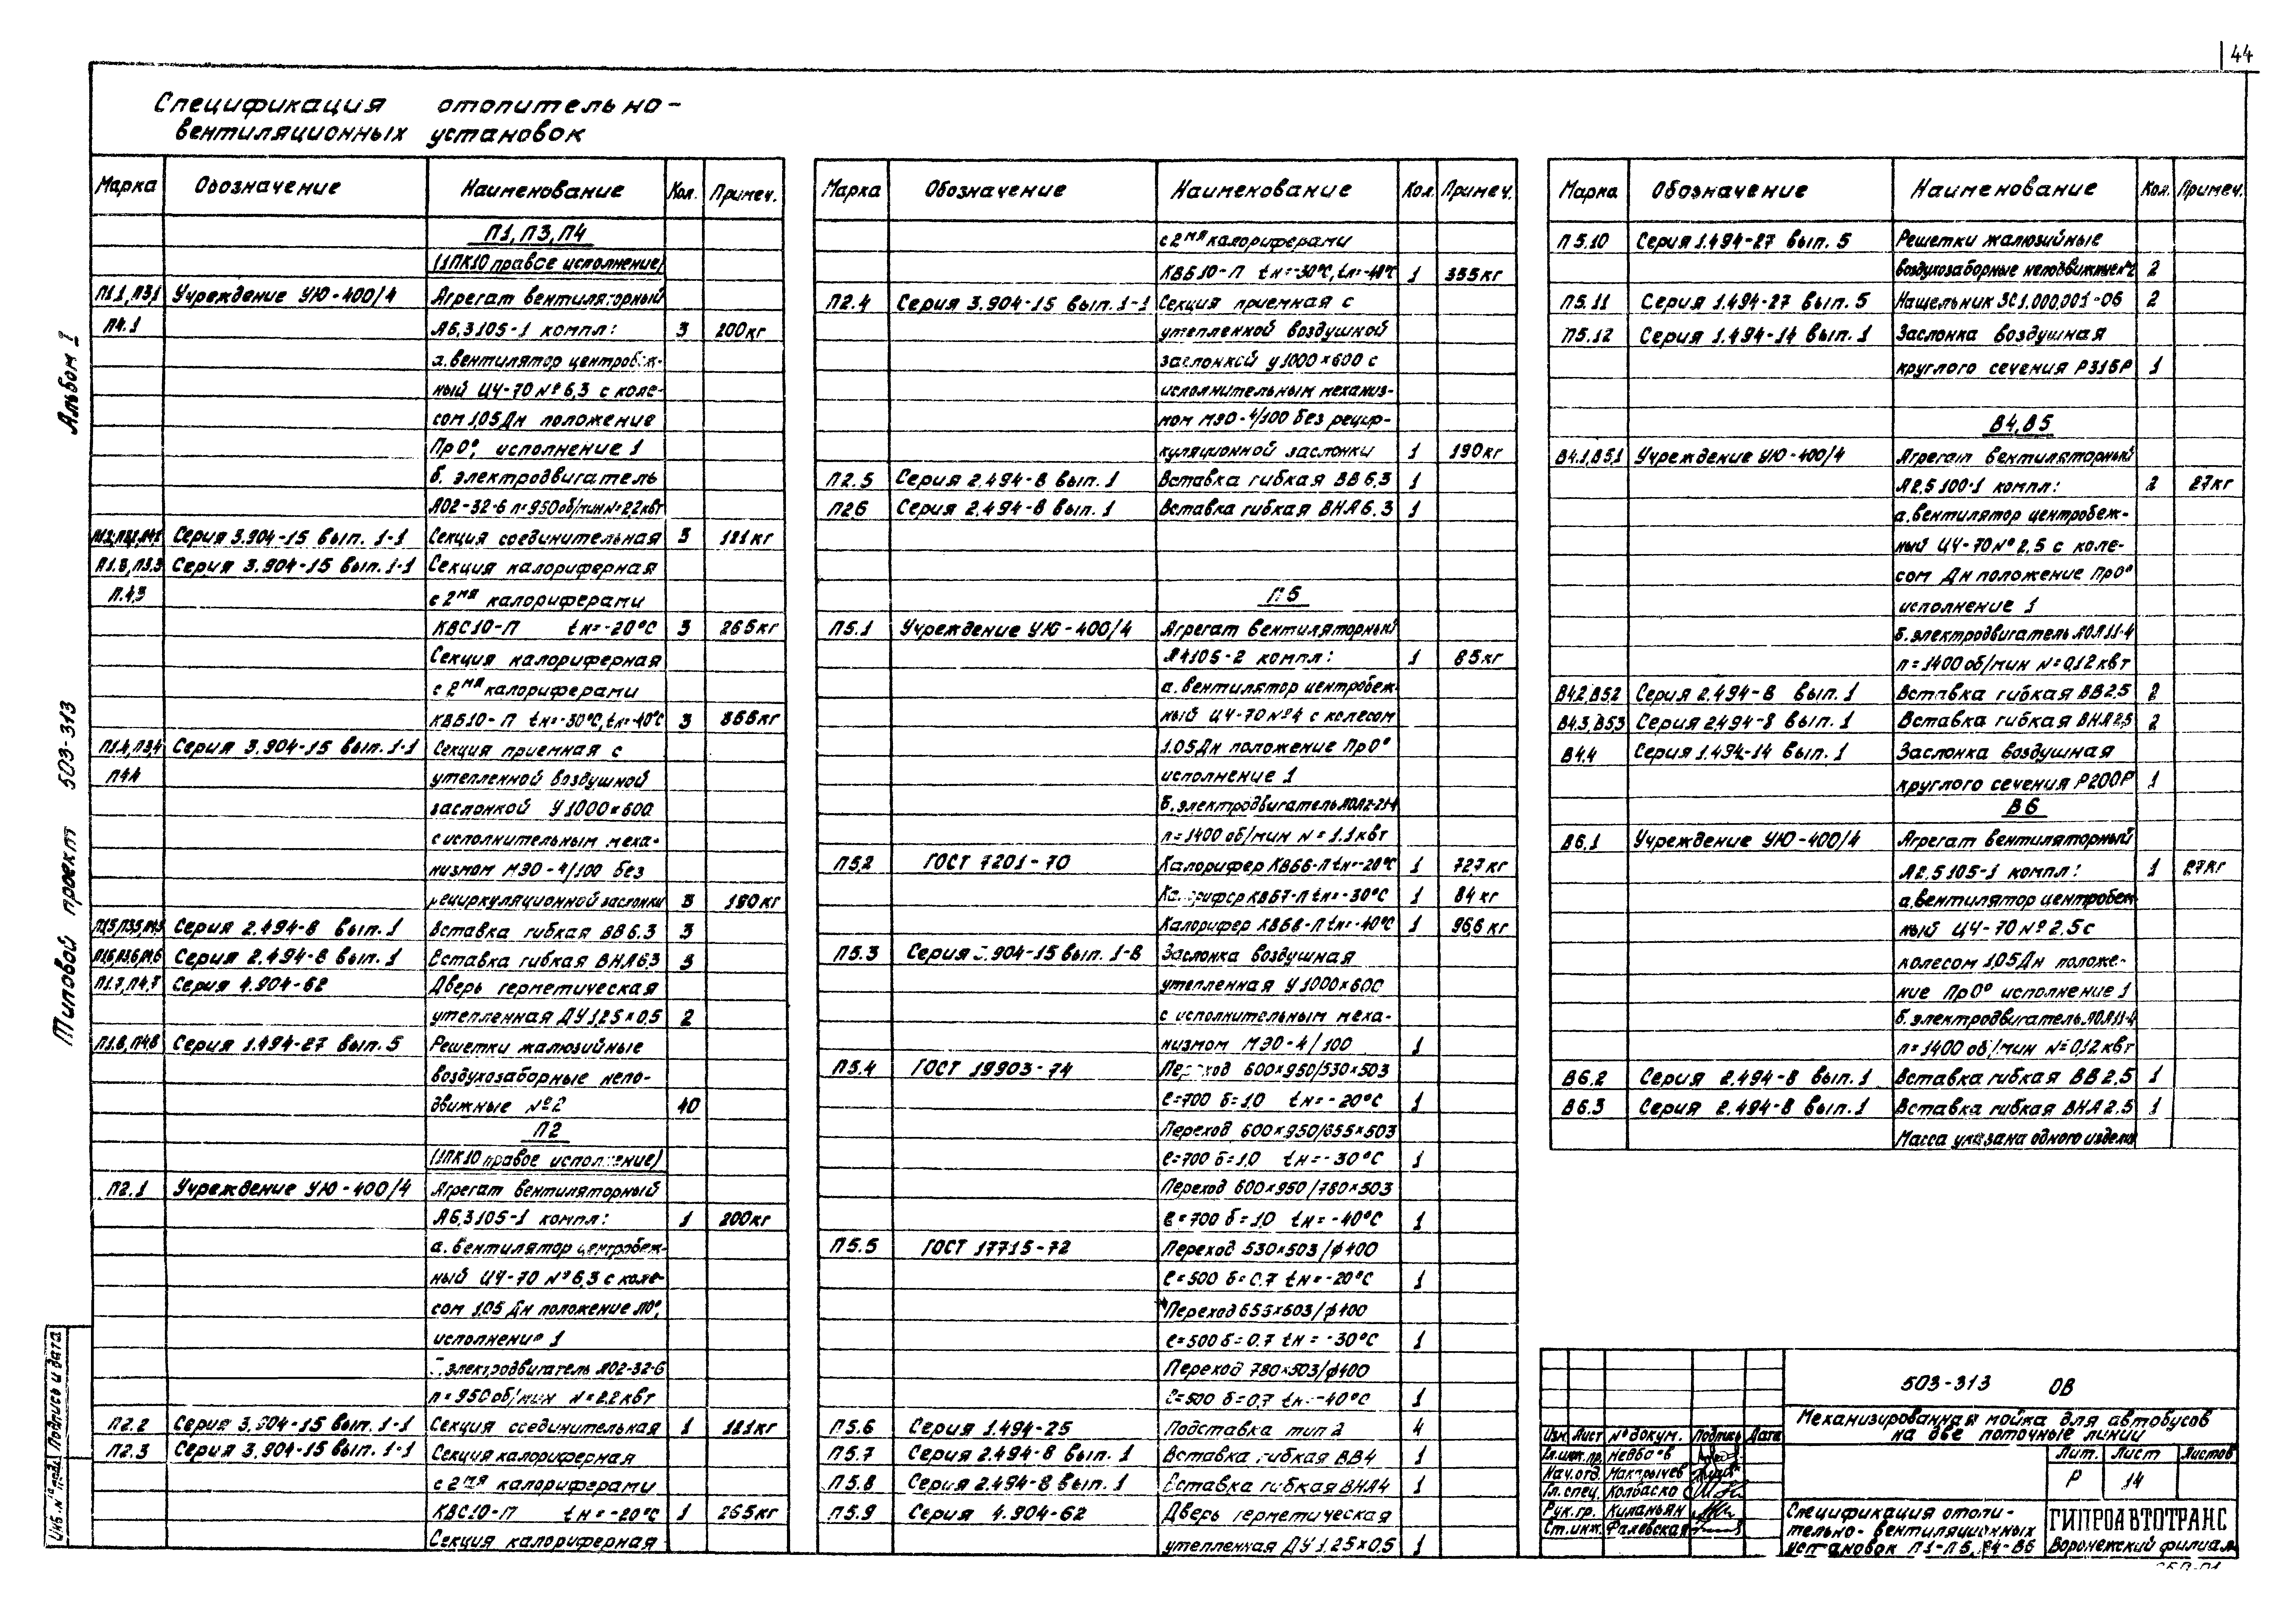 44
Спецификация отопительно-
вентиляционных установок
Альбом I
Типовой проект 503-313
Марка Обозначение Наименование Кол. Примеч.
П1, П3, П4
(1ПК10 правое исполнение)
П1.1, П3.1 Учреждение УЮ-400/4 Агрегат вентиляторный
П4.1 А6,3105-1 компл: 3 200кг
а. вентилятор центробеж-
ный Ц4-70 №6,3 с коле-
сом 1,05 Дн положение
Пр0°, исполнение 1
б. электродвигатель
А02-32-6 n=950 об/мин N=2,2 квт
П1.2, П3.2, П4.2 Серия 3.904-15 вып. 1-1 Секция соединительная 3 121кг
П1.3, П3.3 Серия 3.904-15 вып. 1-1 Секция калориферная
П.4,3 с 2мя калориферами
КВС10-П tн=-20°С 3 265кг
Секция калориферная
с 2мя калориферами
КВБ10-П tн=-30°С, tн=-40°С 3
П1.4, П3.4 Серия 3.904-15 вып. 1-1 Секция приемная с
П4.4 утепленной воздушной
заслонкой У1000×600
с исполнительным меха-
низмом МЭО-4/100 без
рециркуляционной заслонки 3 190кг
П1.5, П3.5, П4.5 Серия 2.494-8 вып. 1 Вставка гибкая ВВ6.3 3
П1.6, П3.6, П4.6 Серия 2.494-8 вып. 1 Вставка гибкая ВНА6.3 3
П1.7, П4.7 Серия 4.904-62 Дверь герметическая
утепленная ДУ 1.25×0.5 2
П1.8, П4.8 Серия 1.494-27 вып. 5 Решетки жалюзийные
воздухозаборные непо-
движные №2 40
П2
(1ПК10 правое исполнение)
П2.1 Учреждение УЮ-400/4 Агрегат вентиляторный
А6,3105-1 компл: 1 200кг
а. вентилятор центробеж-
ный Ц4-70 №6,3 с коле-
сом 1.05 Дн положение Л0°,
исполнение 1
электродвигатель А02-32-6
n=950 об/мин N=2.2 квт
П2.2 Серия 3.904-15 вып. 1-1 Секция соединительная 1 121кг
П2.3 Серия 3.904-15 вып. 1-1 Секция калориферная
с 2мя калориферами
КВС10-П tн=-20°С 1 265кг
Секция калориферная
Марка Обозначение Наименование Кол. Примеч.
с 2мя калориферами
КВБ10-П tн=-30°С, tн=-40°С 1 355кг
П2.4 Серия 3.904-15 вып. 1-1 Секция приемная с
утепленной воздушной
заслонкой У1000×600 с
исполнительным механиз-
мом МЭО-4/100 без рецир-
куляционной заслонки 1 190кг
П2.5 Серия 2.494-8 вып. 1 Вставка гибкая ВВ6.3 1
П2.6 Серия 2.494-8 вып. 1 Вставка гибкая ВНА6.3 1
П5
П5.1 Учреждение УЮ-400/4 Агрегат вентиляторный
А4105-2 компл: 1 85кг
а. вентилятор центробеж-
ный Ц4-70 №4 с колесом
1.05 Дн положение Пр0°
исполнение 1
б. электродвигатель АОЛ2-21-4
n=1400 об/мин N=1.1 квт
П5.2 ГОСТ 7201-70 Калорифер КВБ6-П tн=-20°С 1 72,7кг
Калорифер КВБ7-П tн=-30°С 1 84кг
Калорифер КВБ8-П tн=-40°С 1 96,6кг
П5.3 Серия 3.904-15 вып. 1-8 Заслонка воздушная
утепленная У1000×600
с исполнительным меха-
низмом МЭО-4/100 1
П5.4 ГОСТ 19903-74 Переход 600×950/530×503
ℓ=700 δ=1,0 tн=-20°С 1
Переход 600×950/655×503
ℓ=700 δ=1,0 tн=-30°С 1
Переход 600×950/780×503
ℓ=700 δ=1,0 tн=-40°С 1
П5.5 ГОСТ 17715-72 Переход 530×503/ф400
ℓ=500 δ=0.7 tн=-20°С 1
Переход 655×503/ф400
ℓ=500 δ=0.7 tн=-30°С 1
Переход 780×503/ф400
ℓ=500 δ=0,7 tн=-40°С 1
П5.6 Серия 1.494-25 Подставка тип 2 4
П5.7 Серия 2.494-8 вып. 1 Вставка гибкая ВВ4 1
П5.8 Серия 2.494-8 вып. 1 Вставка гибкая ВНА4 1
П5.9 Серия 4.904-62 Дверь герметическая
утепленная ДУ 1.25×0.5 1
Марка Обозначение Наименование Кол. Примеч.
П5.10 Серия 1.494-27 вып. 5 Решетки жалюзийные
воздухозаборные неподвижные №2 2
П5.11 Серия 1.494-27 вып. 5 Нащельник ЗС1.000.001-06 2
П5.12 Серия 1.494-14 вып. 1 Заслонка воздушная
круглого сечения Р315Р 1
В4, В5
В4.1, В5.1 Учреждение УЮ-400/4 Агрегат вентиляторный
А2,5100-1 компл: 2 27кг
а. вентилятор центробеж-
ный Ц4-70 №2,5 с коле-
сом Дн положение Пр0°
исполнение 1
б. электродвигатель АОЛ11-4
n=1400 об/мин N=0,12 квт
В4.2, В5.2 Серия 2.494-8 вып. 1 Вставка гибкая ВВ2,5 2
В4.3, В5.3 Серия 2.494-8 вып. 1 Вставка гибкая ВНА2,5 2
В4.4 Серия 1.494-14 вып. 1 Заслонка воздушная
круглого сечения Р200Р 1
В6
В6.1 Учреждение УЮ-400/4 Агрегат вентиляторный
А2,5105-1 компл: 1 27кг
а. вентилятор центробеж
ный Ц4-70 №2,5 с
колесом 1,05 Дн положе-
ние Пр0° исполнение 1
б. электродвигатель АОЛ11-4
n=1400 об/мин N=0,12 квт
В6.2 Серия 2.494-8 вып. 1 Вставка гибкая ВВ2,5 1
В6.3 Серия 2.494-8 вып. 1 Вставка гибкая ВНА2.5 1
Масса указана одного изделия
503-313 ОВ
Механизированная мойка для автобусов
на две поточные линии
Изм. Лист № докум. Подпись Дата
Гл.инж.пр.
Нач.отд. Макарычев
Гл.спец. Колбаско
Рук.гр. Киманьян
Ст.инж. Фалевская
Лит. Лист Листов
Р 14
Спецификация отопи-
тельно-вентиляционных
установок П1-П5, В4-В6
ГИПРОАВТОТРАНС
Воронежский филиал
Инв. № подл. Подпись и дата